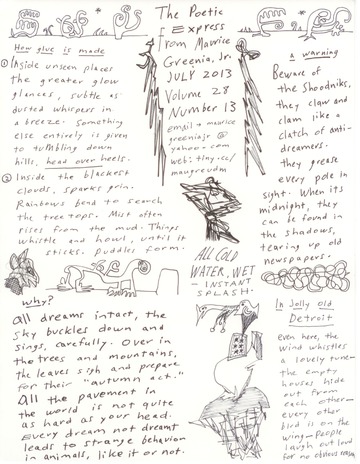 The Poetic
Express
from Maurice
Greenia, Jr.
JULY 2013
Volume 28
Number 13
email → maurice
greeniajr @
yahoo.com
web: tiny.cc/
maugreudm
How glue is made
① Inside unseen places
the greater glow
glances, subtle as
dusted whispers in
a breeze. Something
else entirely is given
to tumbling down
hills, head over heels.
② Inside the blackest
clouds, sparks grin.
Rainbows bend to search
the tree tops. Mist often
rises from the mud. Things
whistle and howl, until it
sticks. Puddles form.
why?
All dreams intact, the
sky buckles down and
sings, carefully. Over in
the trees and mountains,
the leaves sigh and prepare
for their "autumn act."
All the pavement in
the world is not quite
as hard as your head.
Every dream not dreamt
leads to strange behavior
in animals, like it or not.
ALL COLD
WATER, WET
- INSTANT
SPLASH.
a warning
Beware of
the Shoodniks,
they claw and
clam like a
clatch of anti-
dreamers.
they grease
every pole in
sight. When its
midnight, they
can be found in
the shadows,
tearing up old
newspapers.
In Jolly Old
Detroit
even here, the
wind whistles
a lovely tune—
the empty
houses hide
out from
each other—
every other
bird is on the
wing—people
laugh out loud
for no obvious reason.